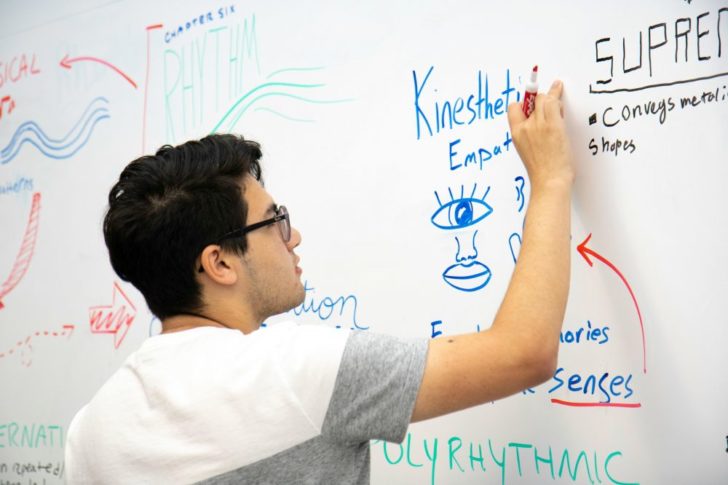 CHAPTER SIX
RHYTHM
SICAL
Kinestheti
Empat
SUPREM
• Conveys metali
Shapes
tion
ories
Senses
ERNATI
n repeated
OLYRHYTHMIC